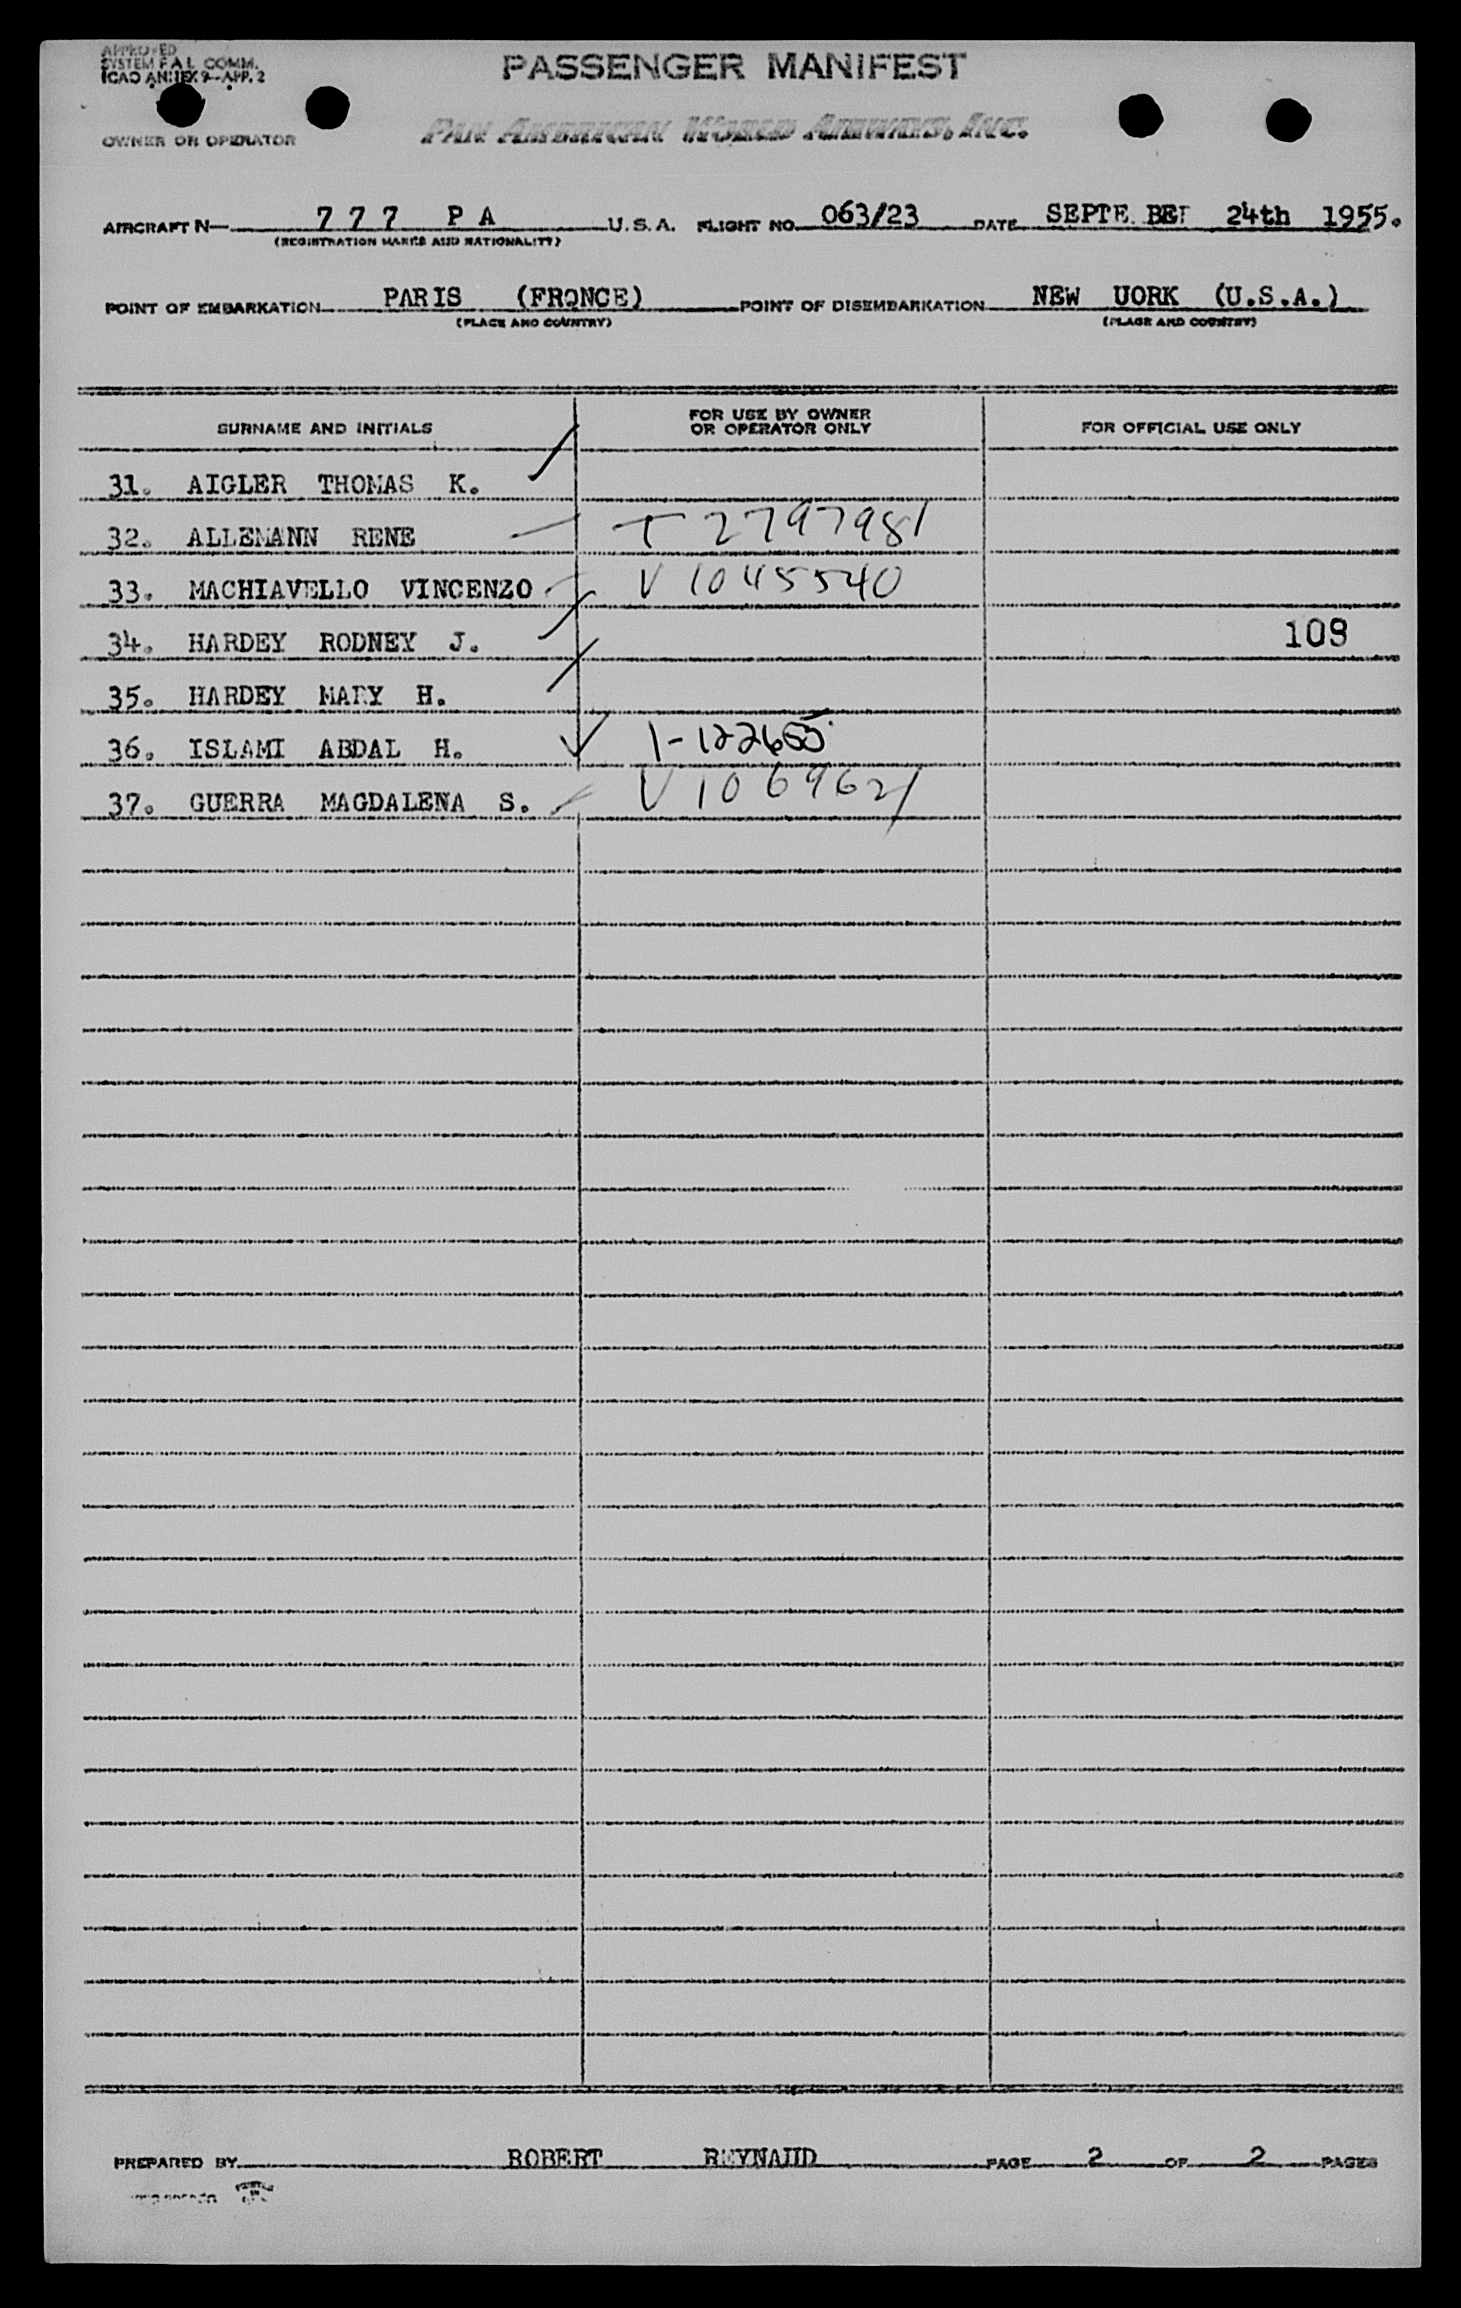 APPROVED
SYSTEM F A L COMM.
ICAO ANNEX 9-APP. 2
PASSENGER MANIFEST
OWNER OR OPERATOR
PAN AMERICAN WORLD AIRWAYS, INC.
AIRCRAFT N- 7 7 7 P A U.S.A. FLIGHT NO. 063/23 DATE SEPTE BET 24th 1955.
(REGISTRATION MARKS AND NATIONALITY)
POINT OF EMBARKATION PARIS (FRONCE) POINT OF DISEMBARKATION NEW UORK (U.S.A.)
(PLACE AND COUNTRY) (PLACE AND COUNTRY)
SURNAME AND INITIALS FOR USE BY OWNER OR OPERATOR ONLY FOR OFFICIAL USE ONLY
31. AIGLER THOMAS K.
32. ALLEMANN RENE T 2797981
33. MACHIAVELLO VINCENZO V 1045540
34. HARDEY RODNEY J. 109
35. HARDEY MARY H.
36. ISLAMI ABDAL H. 1-122655
37. GUERRA MAGDALENA S. V 1069621
PREPARED BY ROBERT REYNAUD PAGE 2 OF 2 PAGES